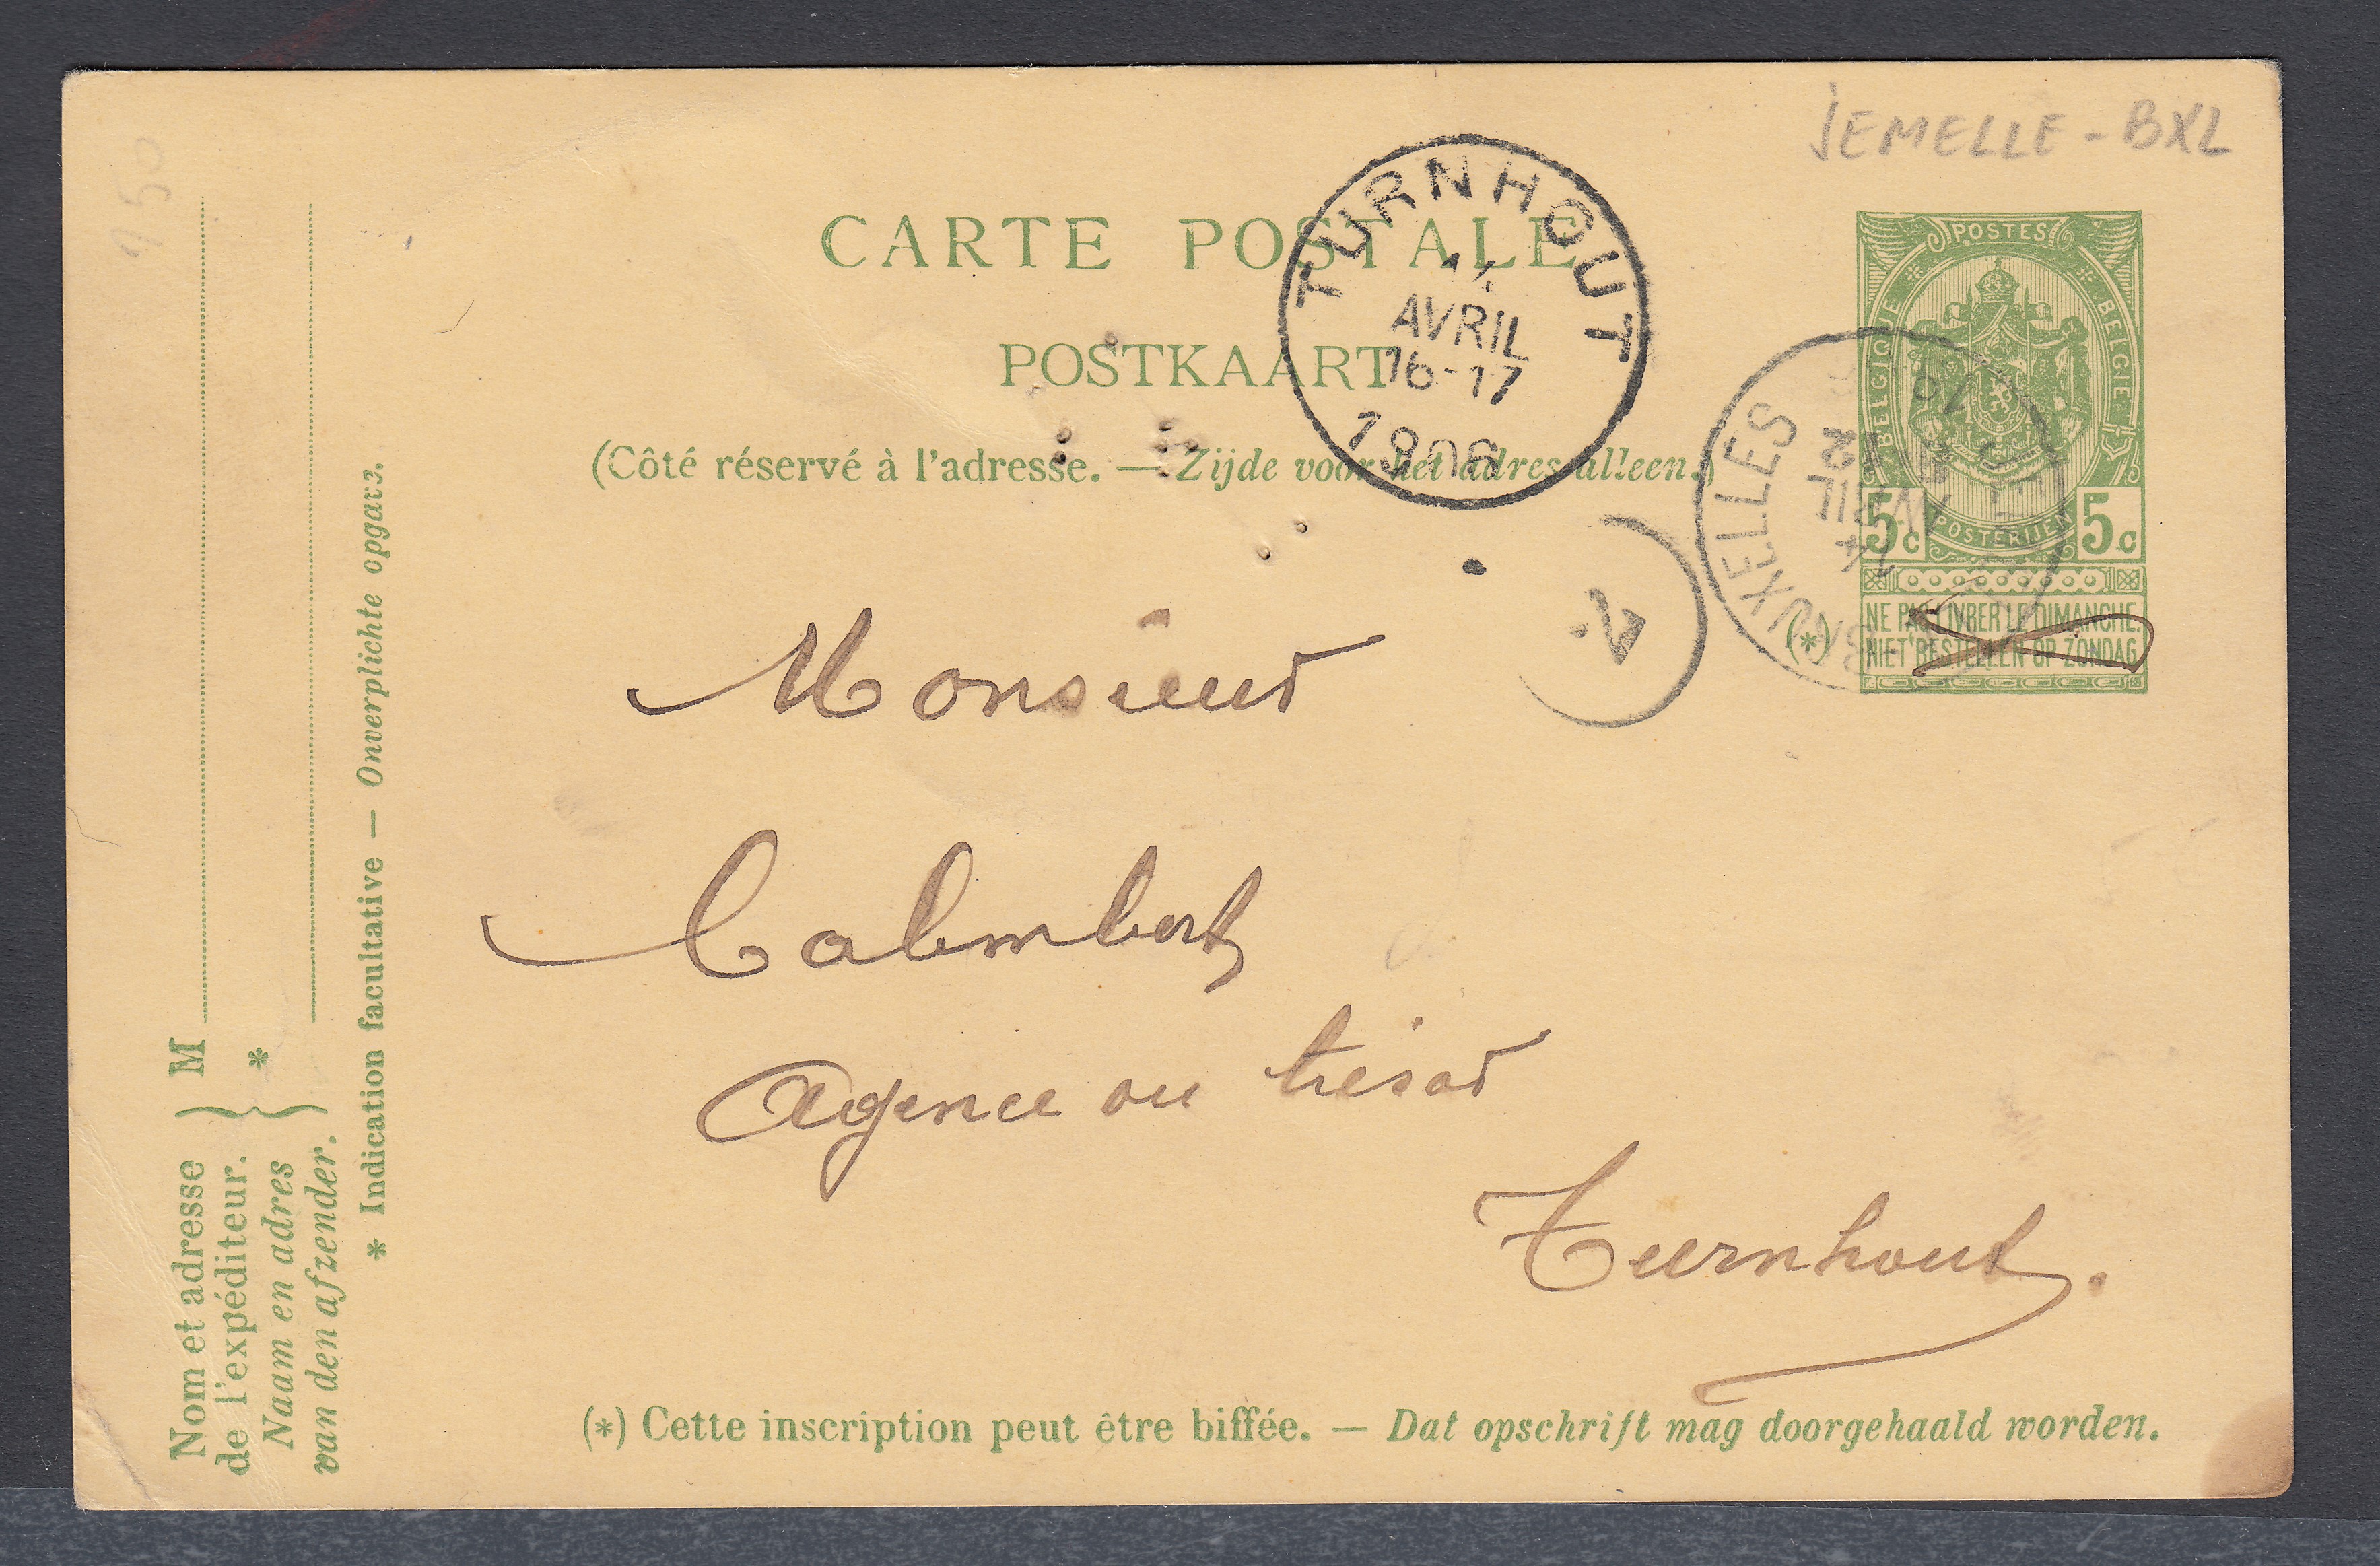 JEMELLE - BXL
9 50
CARTE POSTALE
POSTKAART
(Côté réservé à l'adresse. — Zijde voor het adres alleen.)
TURNHOUT
14
AVRIL
16-17
1906
POSTES
BELGIQUE
BELGIE
POSTERIJEN
5c 5c
NE PAS LIVRER LE DIMANCHE.
NIET BESTELLEN OP ZONDAG.
(*)
BRUXELLES
AVRIL
Monsieur
Calembert
Agence du trésor
Turnhout.
(*) Cette inscription peut être biffée. — Dat opschrift mag doorgehaald worden.
Nom et adresse
de l'expéditeur.
Naam en adres
van den afzender.
M
*
* Indication facultative — Onverplichte opgave.